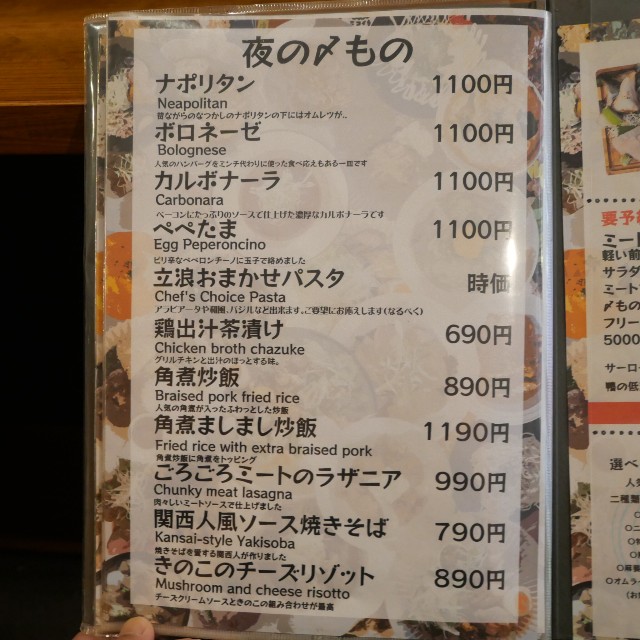 夜の〆もの
ナポリタン 1100円
Neapolitan
昔ながらのなつかしのナポリタンの下にはオムレツが。
ボロネーゼ 1100円
Bolognese
人気のハンバーグをミンチ代わりに使った食べ応えもある一皿です
カルボナーラ 1100円
Carbonara
ベーコンにたっぷりのソースで仕上げた濃厚なカルボナーラです
ぺぺたま 1100円
Egg Peperoncino
ピリ辛なペペロンチーノに玉子で絡めました
立浪おまかせパスタ 時価
Chef's Choice Pasta
アラビアータや和風、バジルなど出来ます。ご要望にお応えします(なるべく)
鶏出汁茶漬け 690円
Chicken broth chazuke
グリルチキンと出汁のほっとする味。
角煮炒飯 890円
Braised pork fried rice
人気の角煮が入ったふわっとした炒飯
角煮ましまし炒飯 1190円
Fried rice with extra braised pork
角煮炒飯に角煮をトッピング
ごろごろミートのラザニア 990円
Chunky meat lasagna
肉々しいミートソースで仕上げました
関西人風ソース焼きそば 790円
Kansai-style Yakisoba
焼きそばを愛する関西人が作りました
きのこのチーズリゾット 890円
Mushroom and cheese risotto
チーズクリームソースときのこの組み合わせが最高
要予約
ミート
軽い前
サラダ
ミート
〆もの
フリー
5000
サーロ
鴨の低
選べ
人気
二種類
オムラ